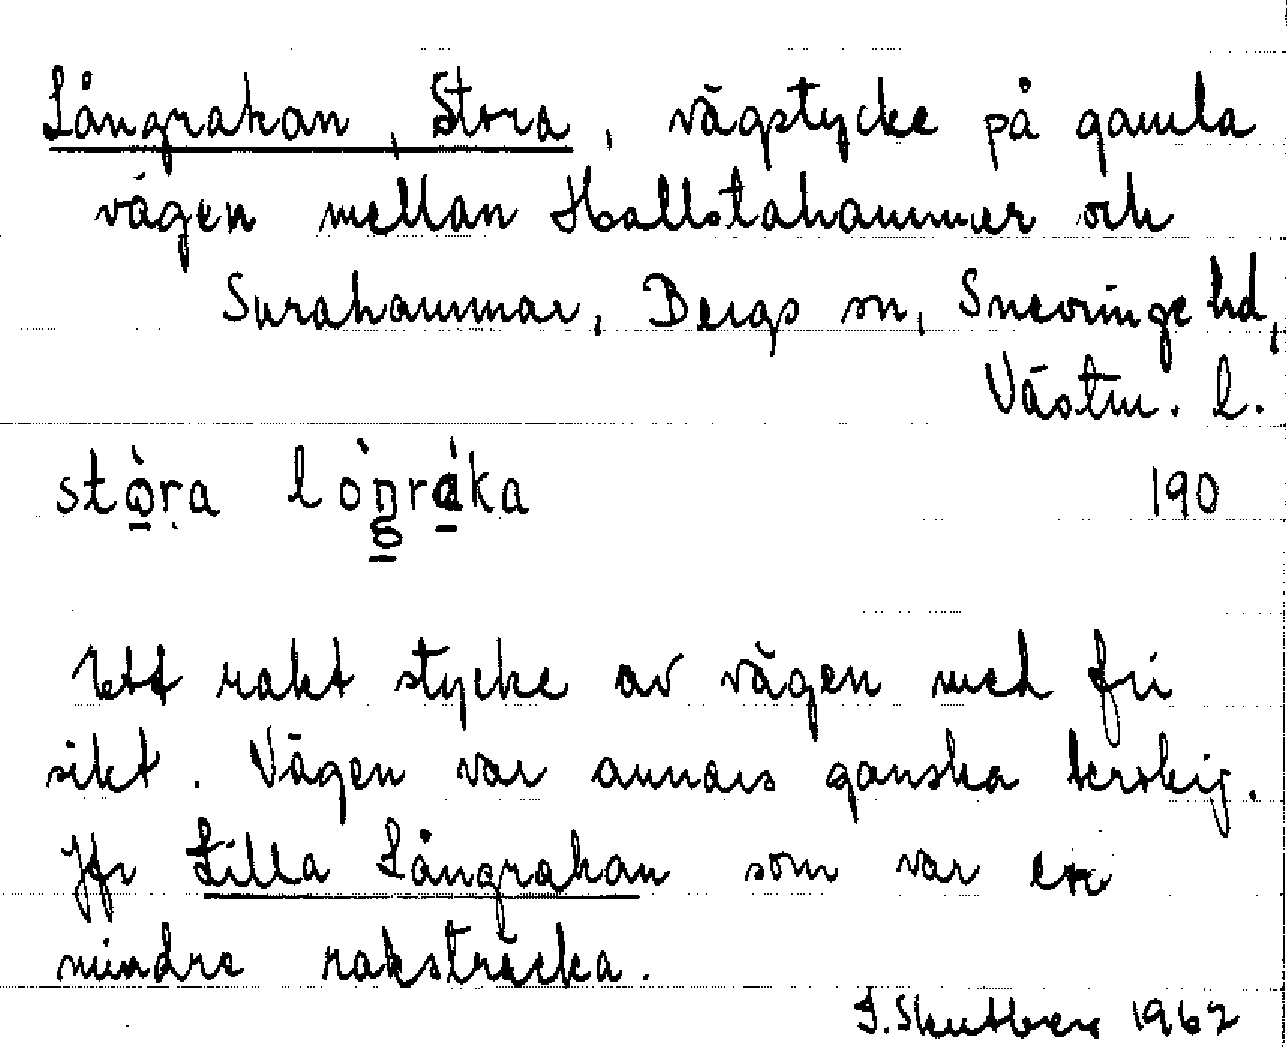 Långrakan, Stora, vägstycke på gamla
vägen mellan Hallstahammer och
Surahammar, Bergs sn, Snevringe hd,
Västm. l.
stò̱ṛa lò̀ŋráka 190
Ett rakt stycke av vägen med fri
sikt. Vägen var annars ganska krokig.
Jfr Lilla Långrakan som var en
mindre raksträcka.
I. Skutberg 1962